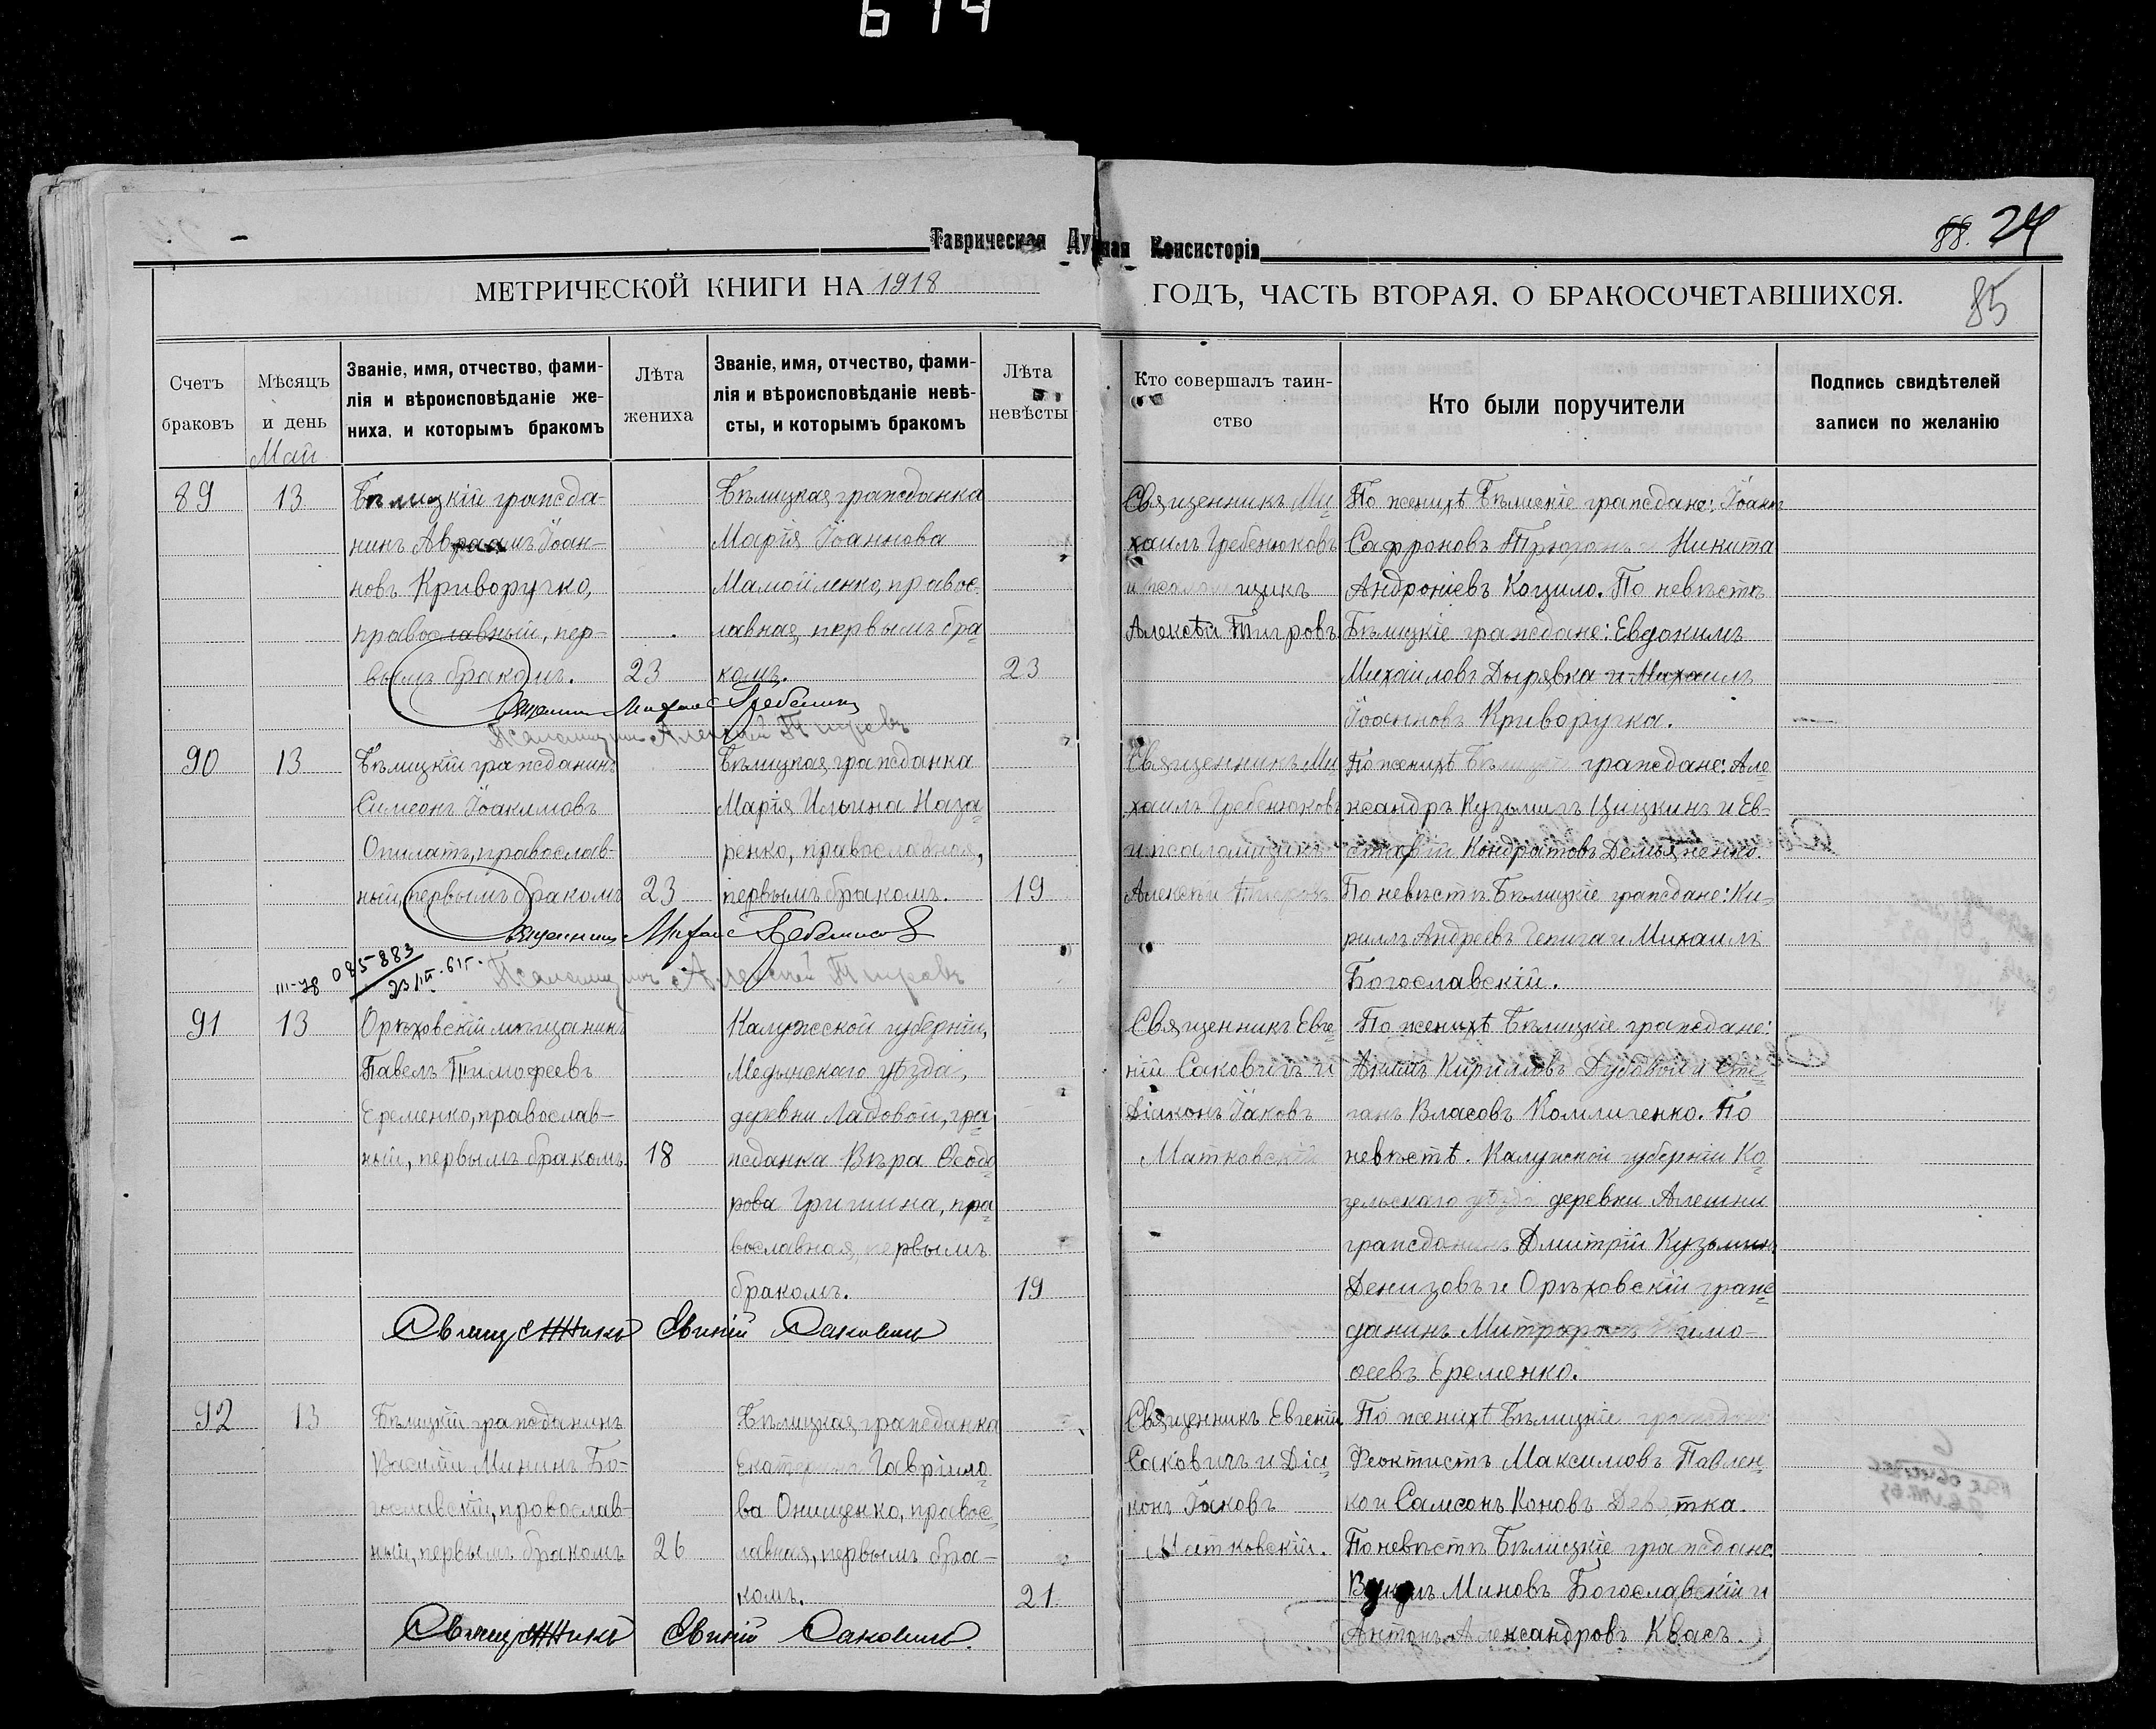 614
Таврическая Духная Консисторія
88. 24
МЕТРИЧЕСКОЙ КНИГИ НА 1918
ГОДЪ, ЧАСТЬ ВТОРАЯ, О БРАКОСОЧЕТАВШИХСЯ.
85
Счетъ
браковъ
Мѣсяцъ
и день
Май
Званіе, имя, отчество, фами-
лія и вѣроисповѣданіе же-
ниха, и которымъ бракомъ
Лѣта
жениха
Званіе, имя, отчество, фами-
лія и вѣроисповѣданіе невѣ-
сты, и которымъ бракомъ
Лѣта
невѣсты
Кто совершалъ таин-
ство
Кто были поручители
Подпись свидѣтелей
записи по желанію
89
13
Бѣлицкій гражда-
нинъ Авраамъ Іоан-
новъ Криворучко,
православный, пер-
вымъ бракомъ.
23
Бѣлицкая гражданка
Марія Іоаннова
Мамойленко, правос-
лавная, первымъ бра-
комъ.
23
Священникъ Ми-
хаилъ Гребенюковъ
и псаломщикъ
Алексѣй Тигровъ
По женихѣ Бѣлицкіе граждане: Іоаннъ
Сафроновъ и Никита
Андроніевъ Коцило. По невѣстѣ
Бѣлицкіе граждане: Евдокимъ
Михаиловъ Дырявка и Михаилъ
Іоанновъ Криворучка.
Священникъ Михаилъ Гребенюковъ
Псаломщикъ Алексѣй Тигровъ
90
13
Бѣлицкій гражданинъ
Симеонъ Іоакимовъ
Опилатъ, православ-
ный, первымъ бракомъ
23
Бѣлицкая гражданка
Марія Ильина Наза-
ренко, православная,
первымъ бракомъ.
19
Священникъ Ми-
хаилъ Гребенюковъ
и псаломщикъ
Алексѣй Тигровъ
По женихѣ Бѣлицкіе граждане: Але-
ксандръ Кузьминъ Цицкинъ и Ев-
стафій Кондратовъ Демьяненко.
По невѣстѣ Бѣлицкіе граждане: Ки-
рилъ Андреевъ Чепига и Михаилъ
Богославскій.
Священникъ Михаилъ Гребенюковъ
Псаломщикъ Алексѣй Тигровъ
III-78 085-883
23/III-61г.
91
13
Орѣховскій мѣщанинъ
Павелъ Тимофеевъ
Еременко, православ-
ный, первымъ бракомъ
18
Калужской губерніи,
Медынскаго уѣзда,
деревни Ладовой, гра-
жданка Вѣра Ѳеодо-
рова Гришина, пра-
вославная, первымъ
бракомъ.
19
Священникъ Евге-
ній Саковичъ и
Діаконъ Іаковъ
Матковскій
По женихѣ Бѣлицкіе граждане:
Акимъ Кириловъ Дубовой и Сте-
панъ Власовъ Коммиченко. По
невѣстѣ. Калужской губерніи Ко-
зельскаго уѣзда деревни Алешни
гражданинъ Дмитрій Кузьминъ
Денизовъ и Орѣховскій граж-
данинъ Митрофанъ Тимо-
ѳеевъ Еременко.
Священникъ Евгеній Саковичъ
92
13
Бѣлицкій гражданинъ
Василій Мининъ Бо-
гославскій, православ-
ный, первымъ бракомъ
26
Бѣлицкая гражданка
Екатерина Гавріило-
ва Онищенко, правос-
лавная, первымъ бра-
комъ.
21
Священникъ Евгеній
Саковичъ и Діа-
конъ Іаковъ
Матковскій.
По женихѣ Бѣлицкіе граждане
Феоктистъ Максимовъ Павлен-
ко и Самсонъ Коновъ
По невѣстѣ Бѣлицкіе граждане:
Миновъ Богославскій и
Антонъ Александровъ Квасъ.
Священникъ Евгеній Саковичъ.